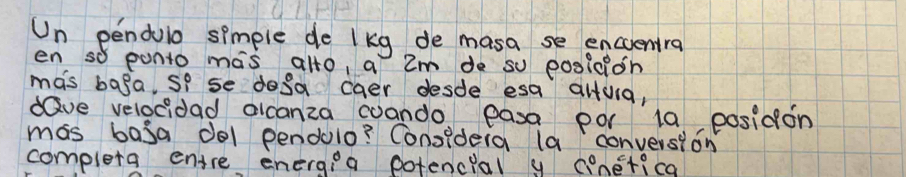 Un péndulo simple de 1kg de masa se encuentra
en so punto más alto, a 2m de su posición
más baja. Si se deja caer desde esa altura,
dQue velocidad alcanza cuando pasa por la posición
más baja del pendulo? Considera la conversión
completa entre energía potencial y cinética